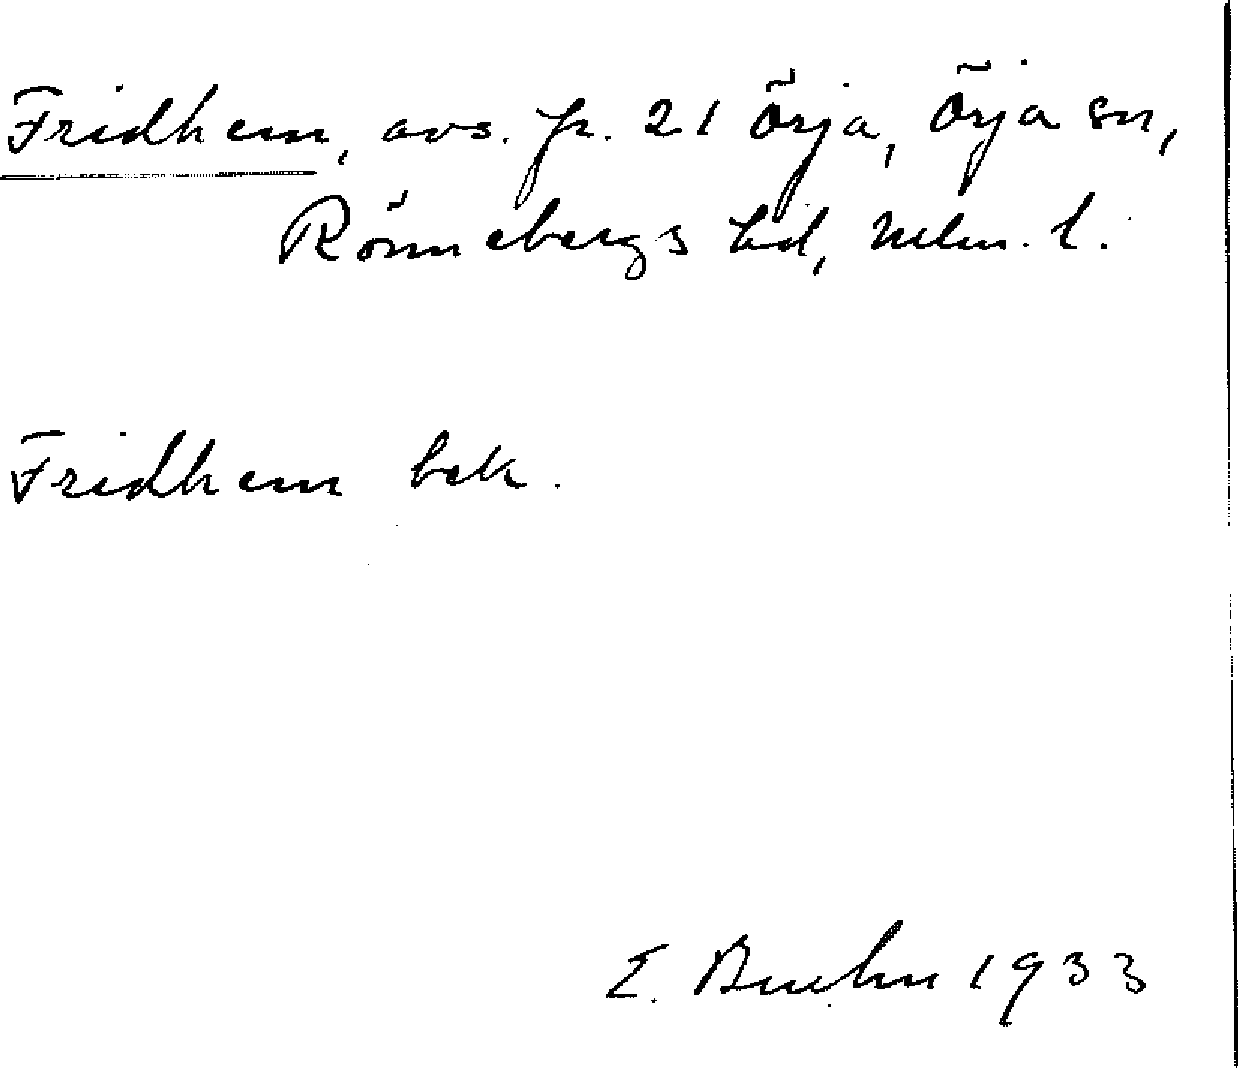 Fridhem, avs. fr. 21 Örja, Örja sn,
Rönnebergs hd, Mlm. l.
Fridhem bek.
E. Bruhn 1933